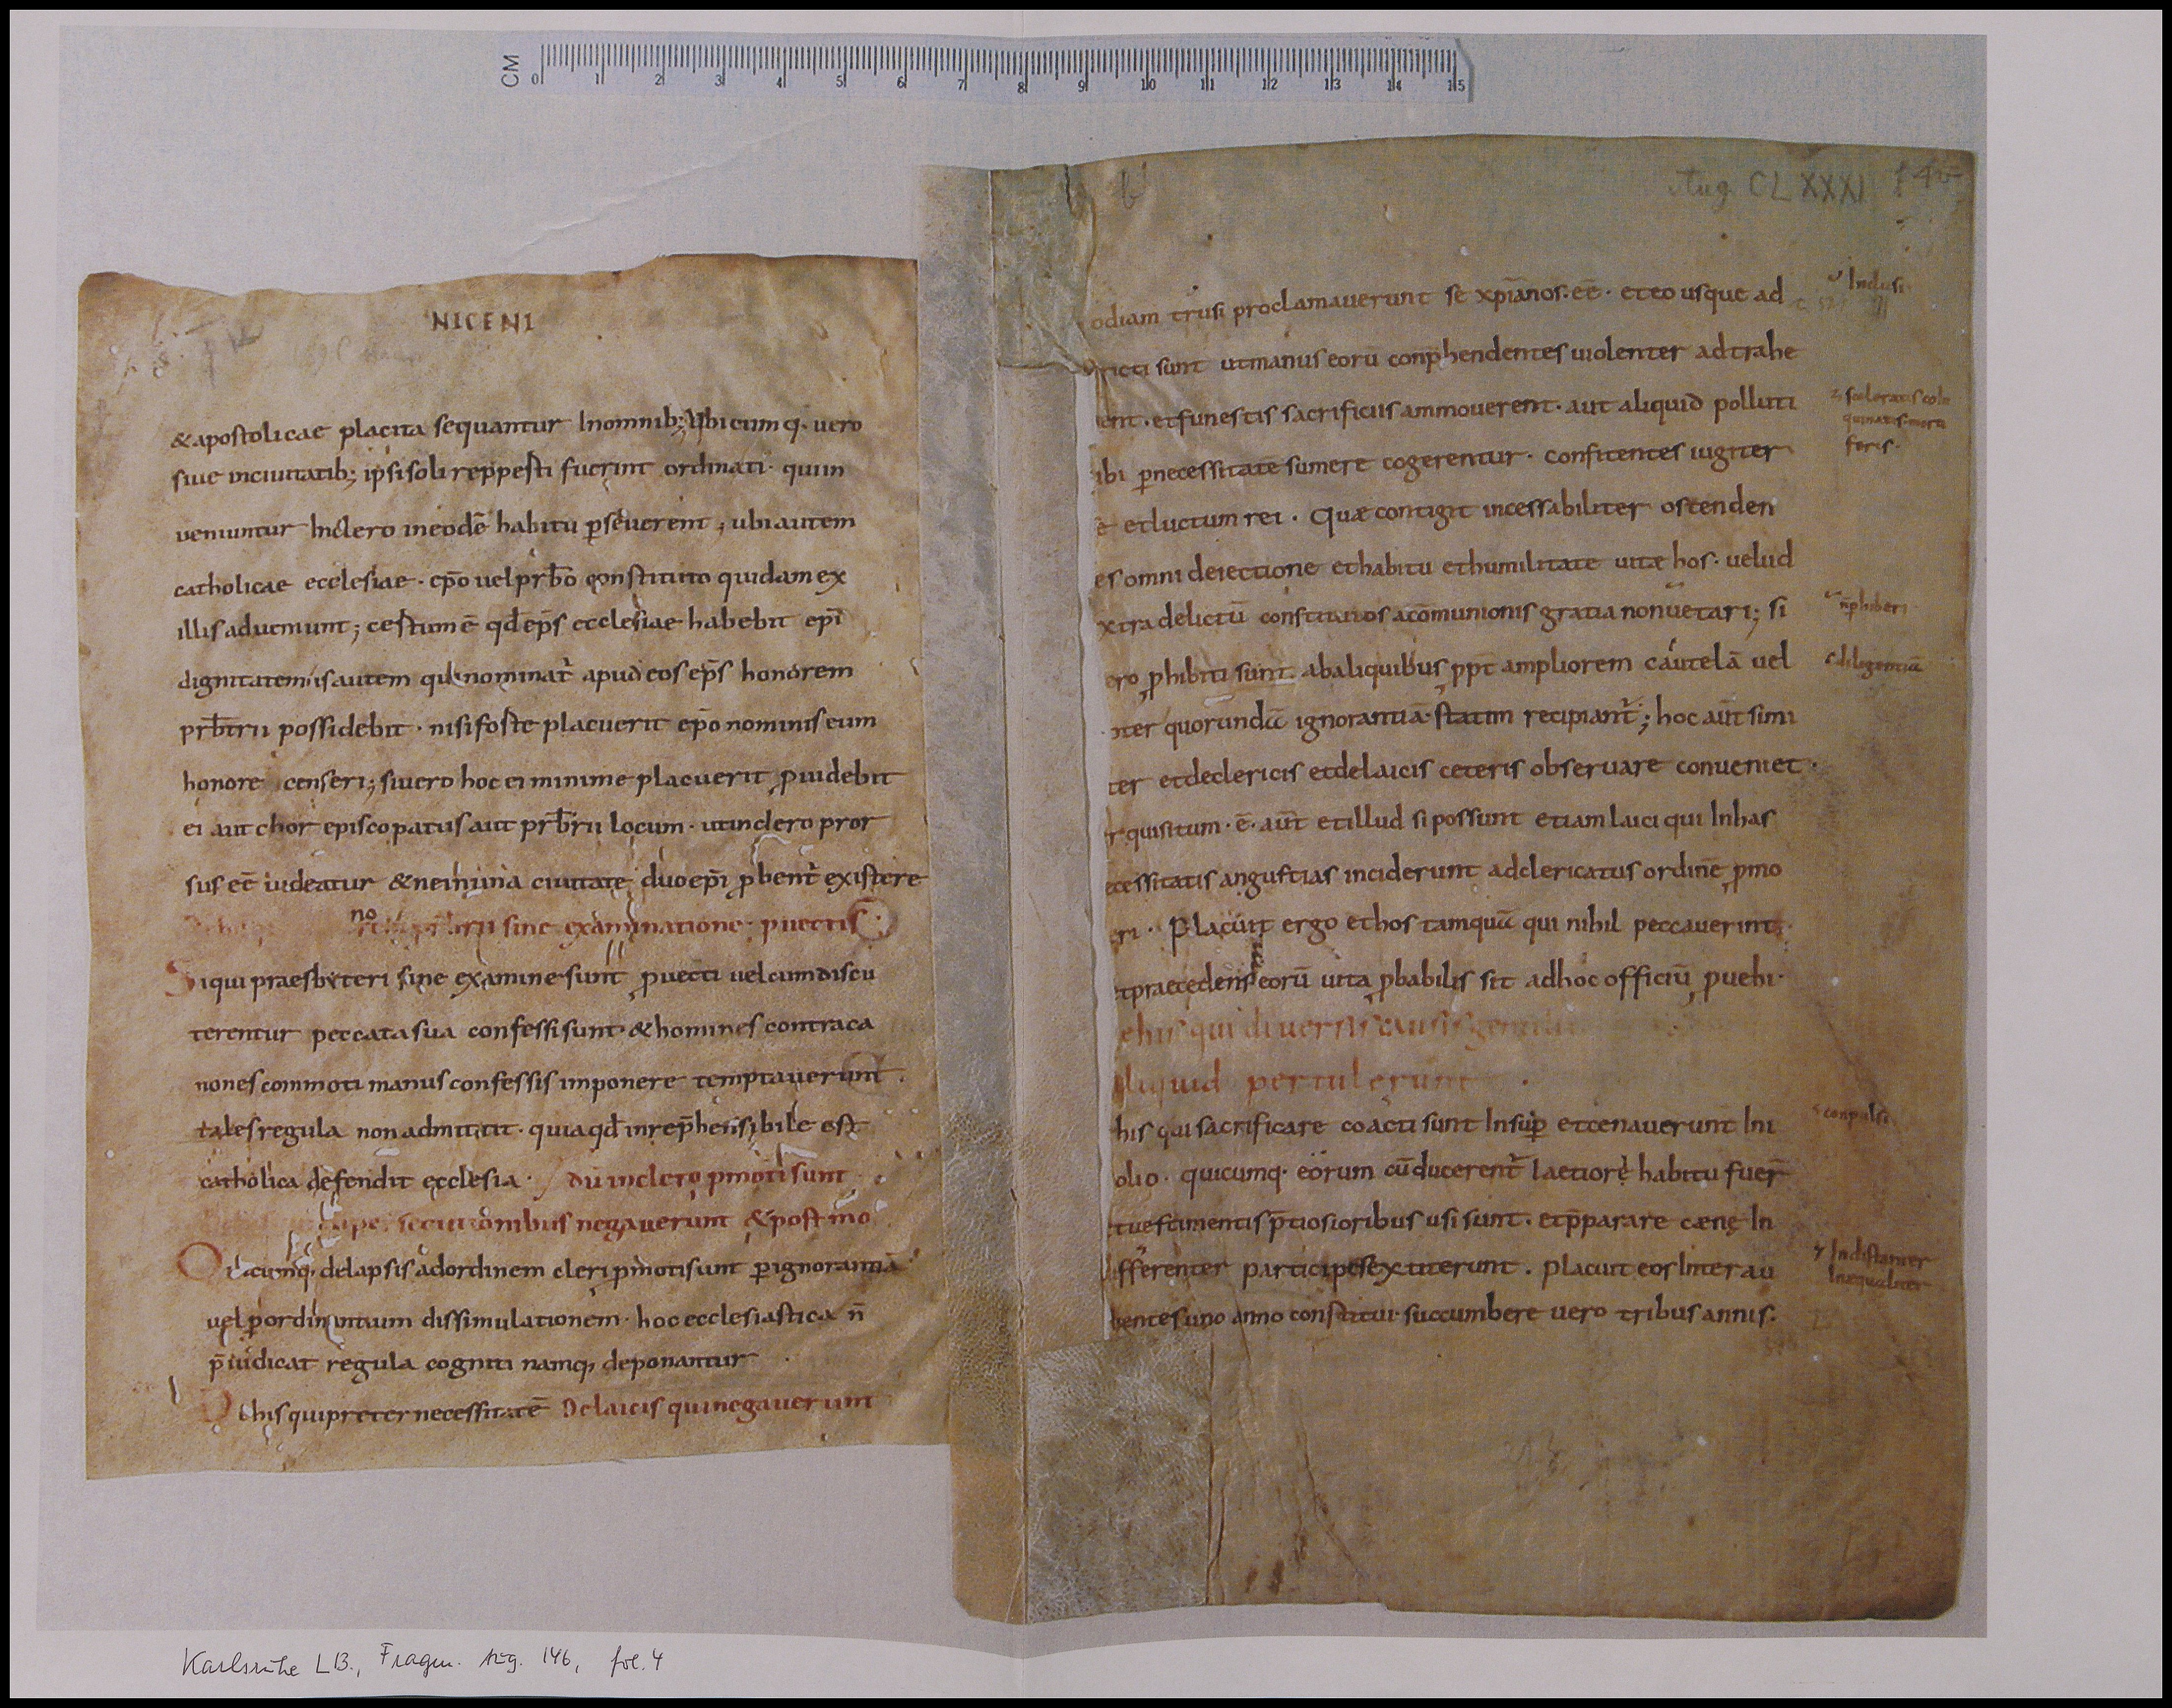 CM 0 1 2 3 4 5 6 7 8 9 10 11 12 13 14 15
NICENI
& apostolicae placita sequantur Inomnib; Ubicumq· vero
siue inciuitatib; ipsi soli reppesti fuerint ordinati· quiin
ueniuntur Inclero ineodē habitu ꝑseuerent; ubi autem
catholicae ecclesiae· ep̄o uel prb̄o constituto quidam ex
illis adueniunt; certum ē qd̄ ep̄s ecclesiae habebit ep̄i
dignitatem; is autem qui nominat̄ apud eos ep̄s honorem
prb̄trii possidebit· nisi forte placuerit ep̄o nominis eum
honore censeri; si uero hoc ei minime placuerit ꝓuidebit
ei aut chor episcopatus aut prb̄rii locum· ut inclero pror
sus eē uideatur & ne in una ciuitate duo ep̄i ꝓbent̄ existere
no sine examinatione· ꝓuectis
Siqui praesbiteri sine examine sunt ꝓuecti uel cum discu
terentur peccata sua confessi sunt· & homines contra ca
nones commoti manus confessis imponere temptauerunt·
tales regula non admittit· quia qd̄ inrep̄hensibile est
catholica defendit ecclesia· du inclero ꝓmoti sunt
negauerunt & post mo
Quicumq, de lapsis ad ordinem cleri ꝓmoti sunt ꝑ ignorantiā
uel ꝑ ordinantium dissimulationem· hoc ecclesiastica n̄
p̄iudicat regula cogniti namq, deponantur
De his qui preter necessitatē De laicis qui negauerunt
b
Aug. CLXXXI f 4v
odiam trusi proclamauerunt se xp̄ianos· eē· et eo usque ad
Inclusi
ricti sunt ut manus eorū conp̄hendentes uiolenter adtrahe
ent· et funestis sacrificiis ammouerent· aut aliquid polluti
sceleratis coin
quinatis mora
feris·
ibi ꝑ necessitate sumere cogerentur· confitentes iugiter
ē et luctum rei· Quae contigit incessabiliter ostenden
es omni deiectione et habitu et humilitate uitae hos· uelud
xtra delictū constitutos a cōmunionis gratia non uetari; si
n̄ phiberi
ero ꝓhibiti sunt ab aliquibus ꝓpt̄ ampliorem cautelā uel
diligentiā
nter quorundā ignorantiā· statim recipiant̄; hoc aūt simi
ter et de clericis et de laicis ceteris obseruare conueniet·
rquisitum· ē· aūt et illud si possunt etiam laici qui Inhas
ecessitatis angustias inciderunt ad clericatus ordinē ꝓmo
eri· Placuit ergo et hos tamquā qui nihil peccauerint·
et praecedens eorū uita ꝓbabilis sit ad hoc officiū ꝓuehi·
e his qui diuersis causis
liquid pertulerunt
his qui sacrificare coacti sunt Insuꝑ et cenauerunt Ini
conpulsi
olio· quicumq· eorum cū ducerent̄ laetiorę habitu fuer̄
t uestimentis p̄tiosioribus usi sunt· et p̄parare caenę In
ifferenter participes extiterunt· placuit eos Inter au
Indistanter
Inequaliter
ientes uno anno constitui· succumbere uero tribus annis·
Karlsruhe LB., Fragm. Aug. 146, fol. 4